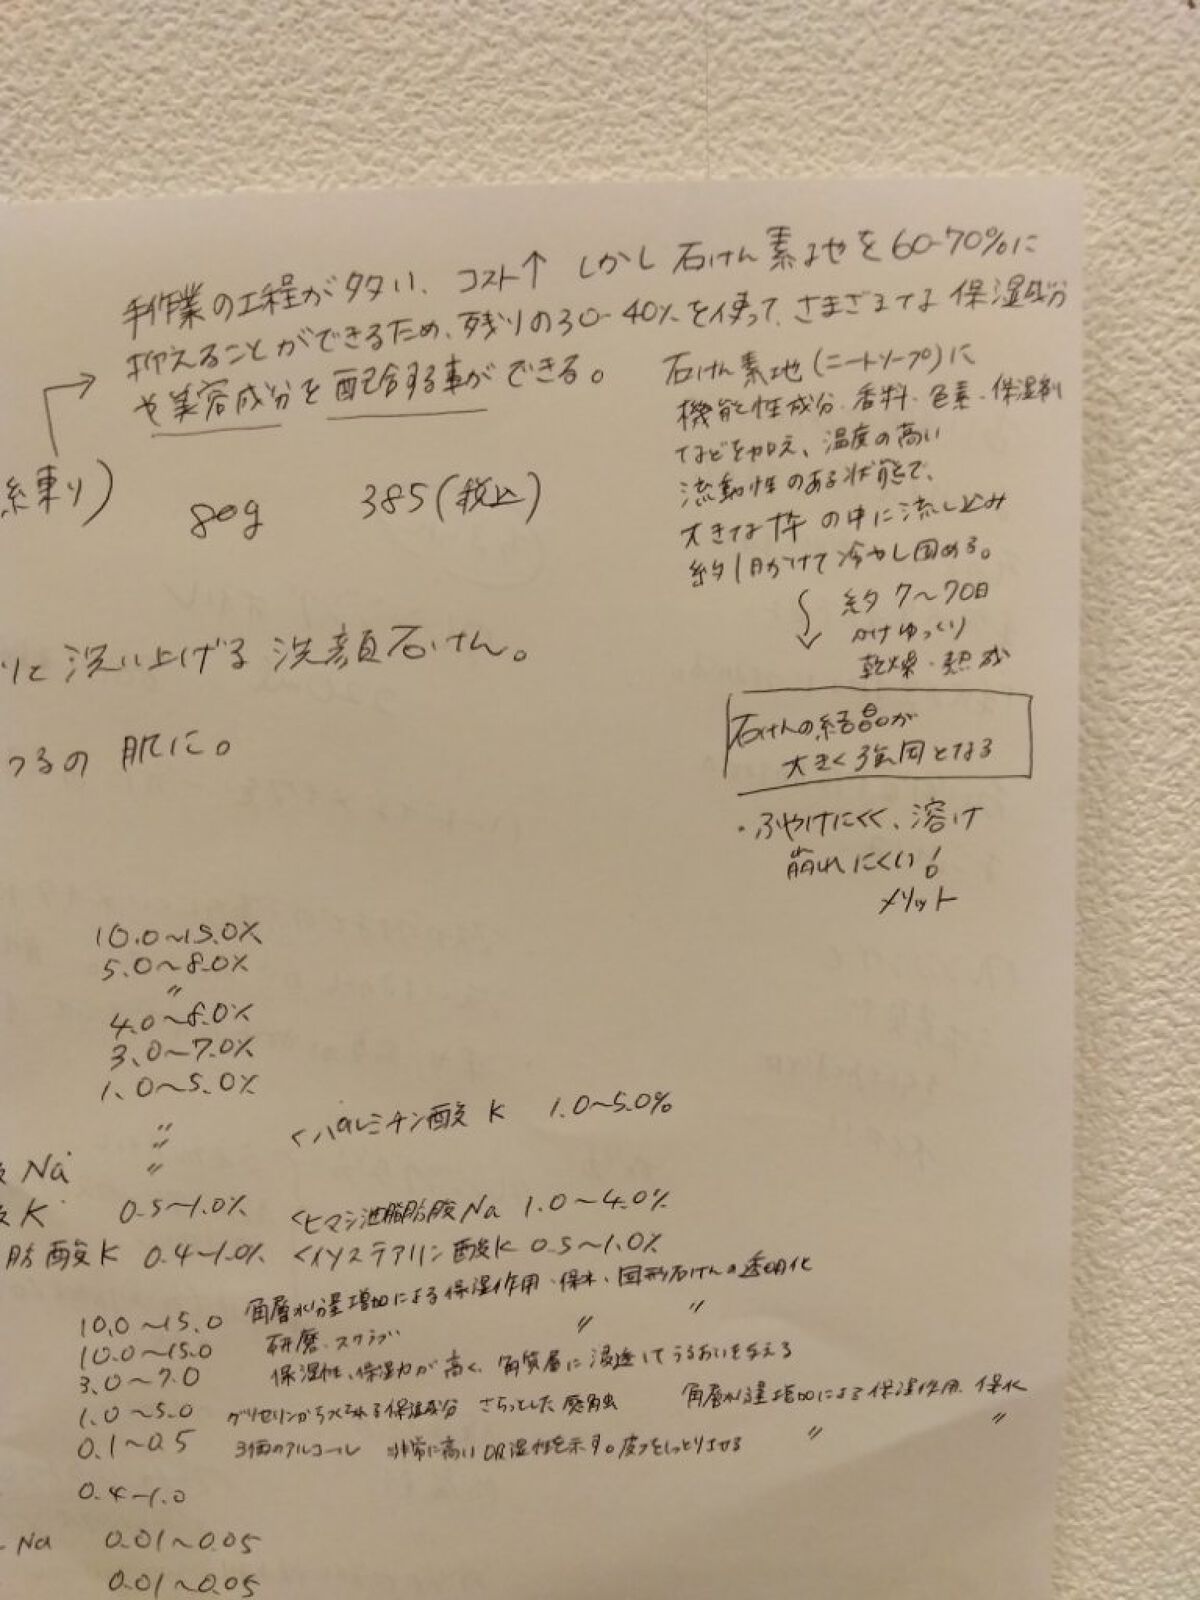 手作業の工程が多い、コスト↑ しかし 石けん素地を60-70%に
抑えることができるため、残りの30-40%を使って、さまざまな保湿成分
や美容成分を配合する事ができる。
石けん素地(ニートソープ)に
機能性成分、香料、色素、保湿剤
などを加え、温度の高い
流動性のある状態で、
大きな枠の中に流し込み
約1日かけて冷やし固める。
約7〜70日
かけゆっくり
乾燥・熟成
石けんの結晶が
大きく強固となる
・ふやけにくく、溶け
崩れにくい!
メリット
練り) 80g 385(税込)
りと洗い上げる洗顔石けん。
つるの肌に。
10.0〜15.0%
5.0〜8.0%
〃
4.0〜8.0%
3.0〜7.0%
1.0〜5.0%
〃 <パルミチン酸K 1.0〜5.0%
Na 〃
K 0.5〜1.0% <ヒマシ油脂肪酸Na 1.0〜4.0%
肪酸K 0.4〜1.0% <イソステアリン酸K 0.5〜1.0%
10.0〜15.0 角層水分量増加による保湿作用・保水、固形石けんの透明化
10.0〜15.0 研磨、スクラブ 〃 〃
3.0〜7.0 保湿性、保湿力が高く、角質層に浸透してうるおいを与える
1.0〜5.0 グリセリンからつくられる保湿成分 さらっとした感触 角層水分量増加による保湿作用、保水
0.1〜0.5 3価のアルコール 非常に高い吸湿性を示す。皮フをしっとりさせる 〃 〃
0.4〜1.0
Na 0.01〜0.05
0.01〜0.05